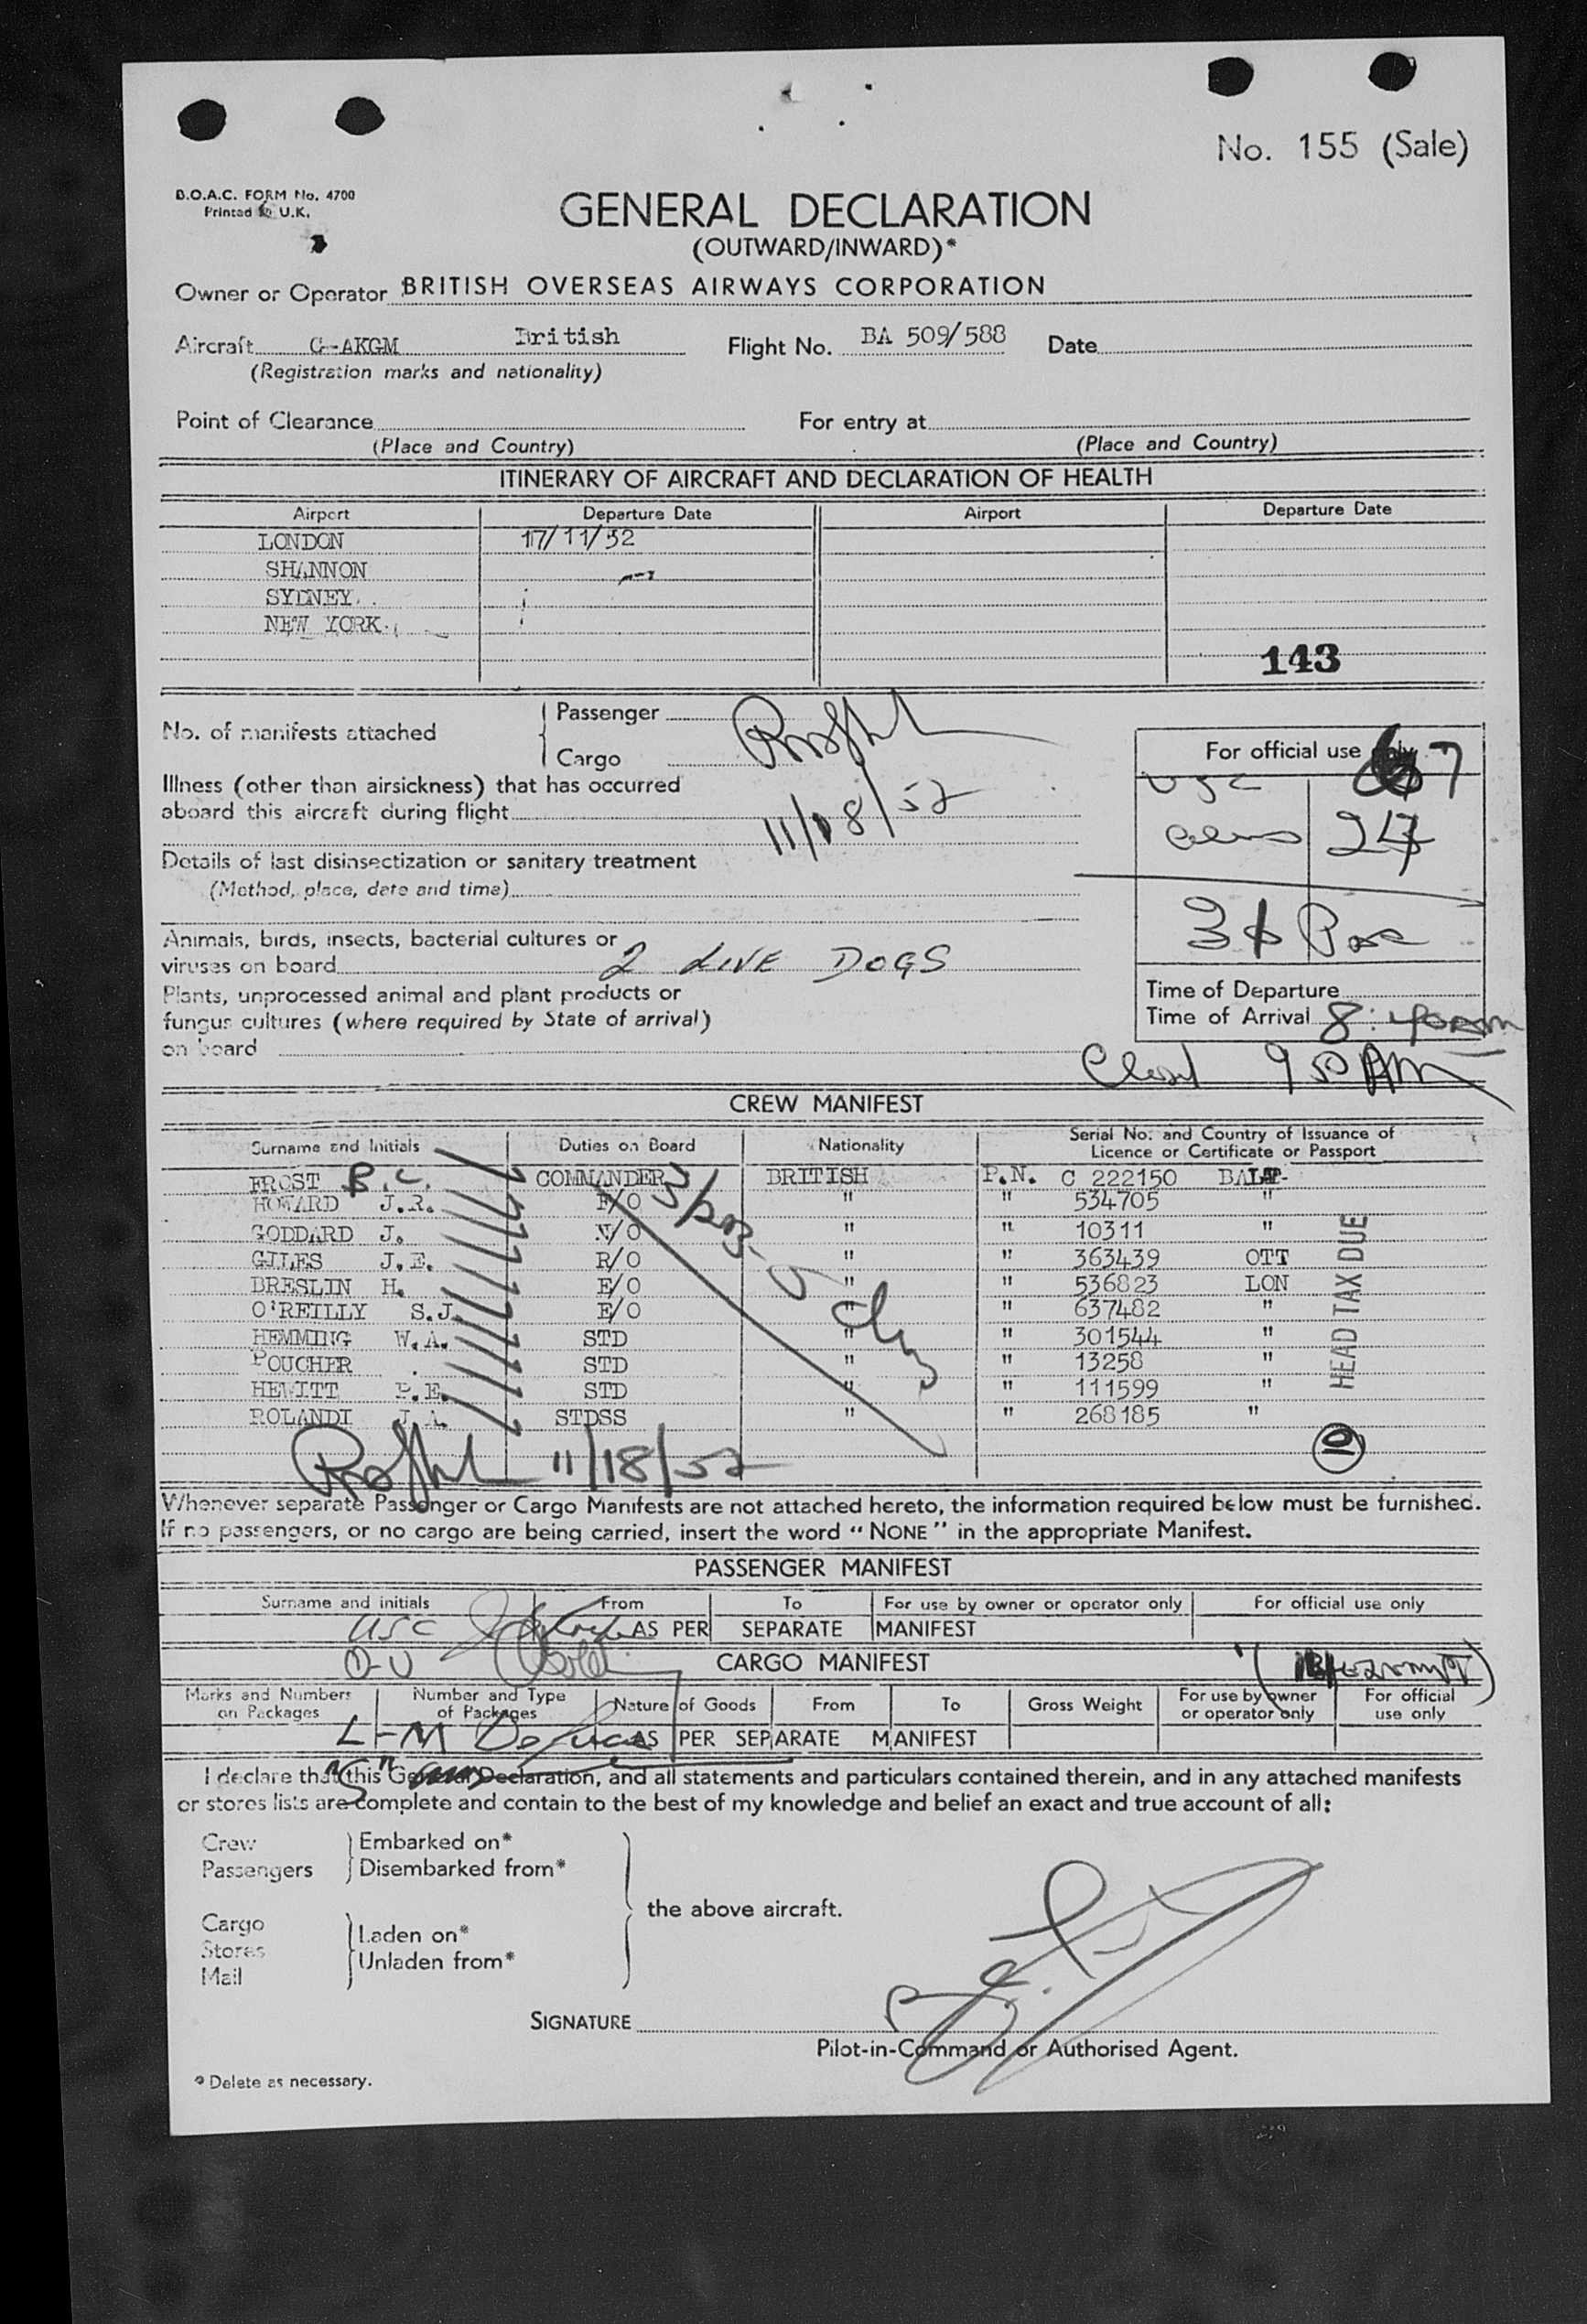 No. 155 (Sale)
B.O.A.C. FORM No. 4700
Printed in U.K.
GENERAL DECLARATION
(OUTWARD/INWARD)*
Owner or Operator BRITISH OVERSEAS AIRWAYS CORPORATION
Aircraft G-AKGM British Flight No. BA 509/588 Date
(Registration marks and nationality)
Point of Clearance For entry at
(Place and Country) (Place and Country)
ITINERARY OF AIRCRAFT AND DECLARATION OF HEALTH
Airport Departure Date Airport Departure Date
LONDON 17/11/52
SHANNON
SYDNEY
NEW YORK
143
No. of manifests attached Passenger
Cargo
For official use only
Illness (other than airsickness) that has occurred
aboard this aircraft during flight
11/18/52
USC 7
Details of last disinsectization or sanitary treatment
(Method, place, date and time)
Animals, birds, insects, bacterial cultures or
viruses on board 2 LIVE DOGS
Plants, unprocessed animal and plant products or
fungus cultures (where required by State of arrival)
on board
Time of Departure
Time of Arrival 8:40am
950 AM
CREW MANIFEST
Surname and Initials Duties on Board Nationality Serial No. and Country of Issuance of
Licence or Certificate or Passport
FROST B.C. COMMANDER BRITISH P.N. C 222150 BALT-
HOWARD J.R. F/O " " 534705 "
GODDARD J. N/O " " 10311 "
GILES J.E. R/O " " 363439 OTT
BRESLIN H. E/O " " 536823 LON
O'REILLY S.J. E/O " " 637482 "
HEMMING W.A. STD " " 301544 "
POUCHER . STD " " 13258 "
HEWITT P.E. STD " " 111599 "
ROLANDI J.A. STDSS " " 268185 "
HEAD TAX DUE
10
11/18/52
Whenever separate Passenger or Cargo Manifests are not attached hereto, the information required below must be furnished.
If no passengers, or no cargo are being carried, insert the word "NONE" in the appropriate Manifest.
PASSENGER MANIFEST
Surname and initials From To For use by owner or operator only For official use only
USC AS PER SEPARATE MANIFEST
CARGO MANIFEST
Marks and Numbers on Packages Number and Type of Packages Nature of Goods From To Gross Weight For use by owner or operator only For official use only
AS PER SEPARATE MANIFEST
I declare that this General Declaration, and all statements and particulars contained therein, and in any attached manifests
or stores lists are complete and contain to the best of my knowledge and belief an exact and true account of all:
Crew Embarked on*
Passengers Disembarked from*
the above aircraft.
Cargo Laden on*
Stores
Mail Unladen from*
SIGNATURE
Pilot-in-Command or Authorised Agent.
* Delete as necessary.